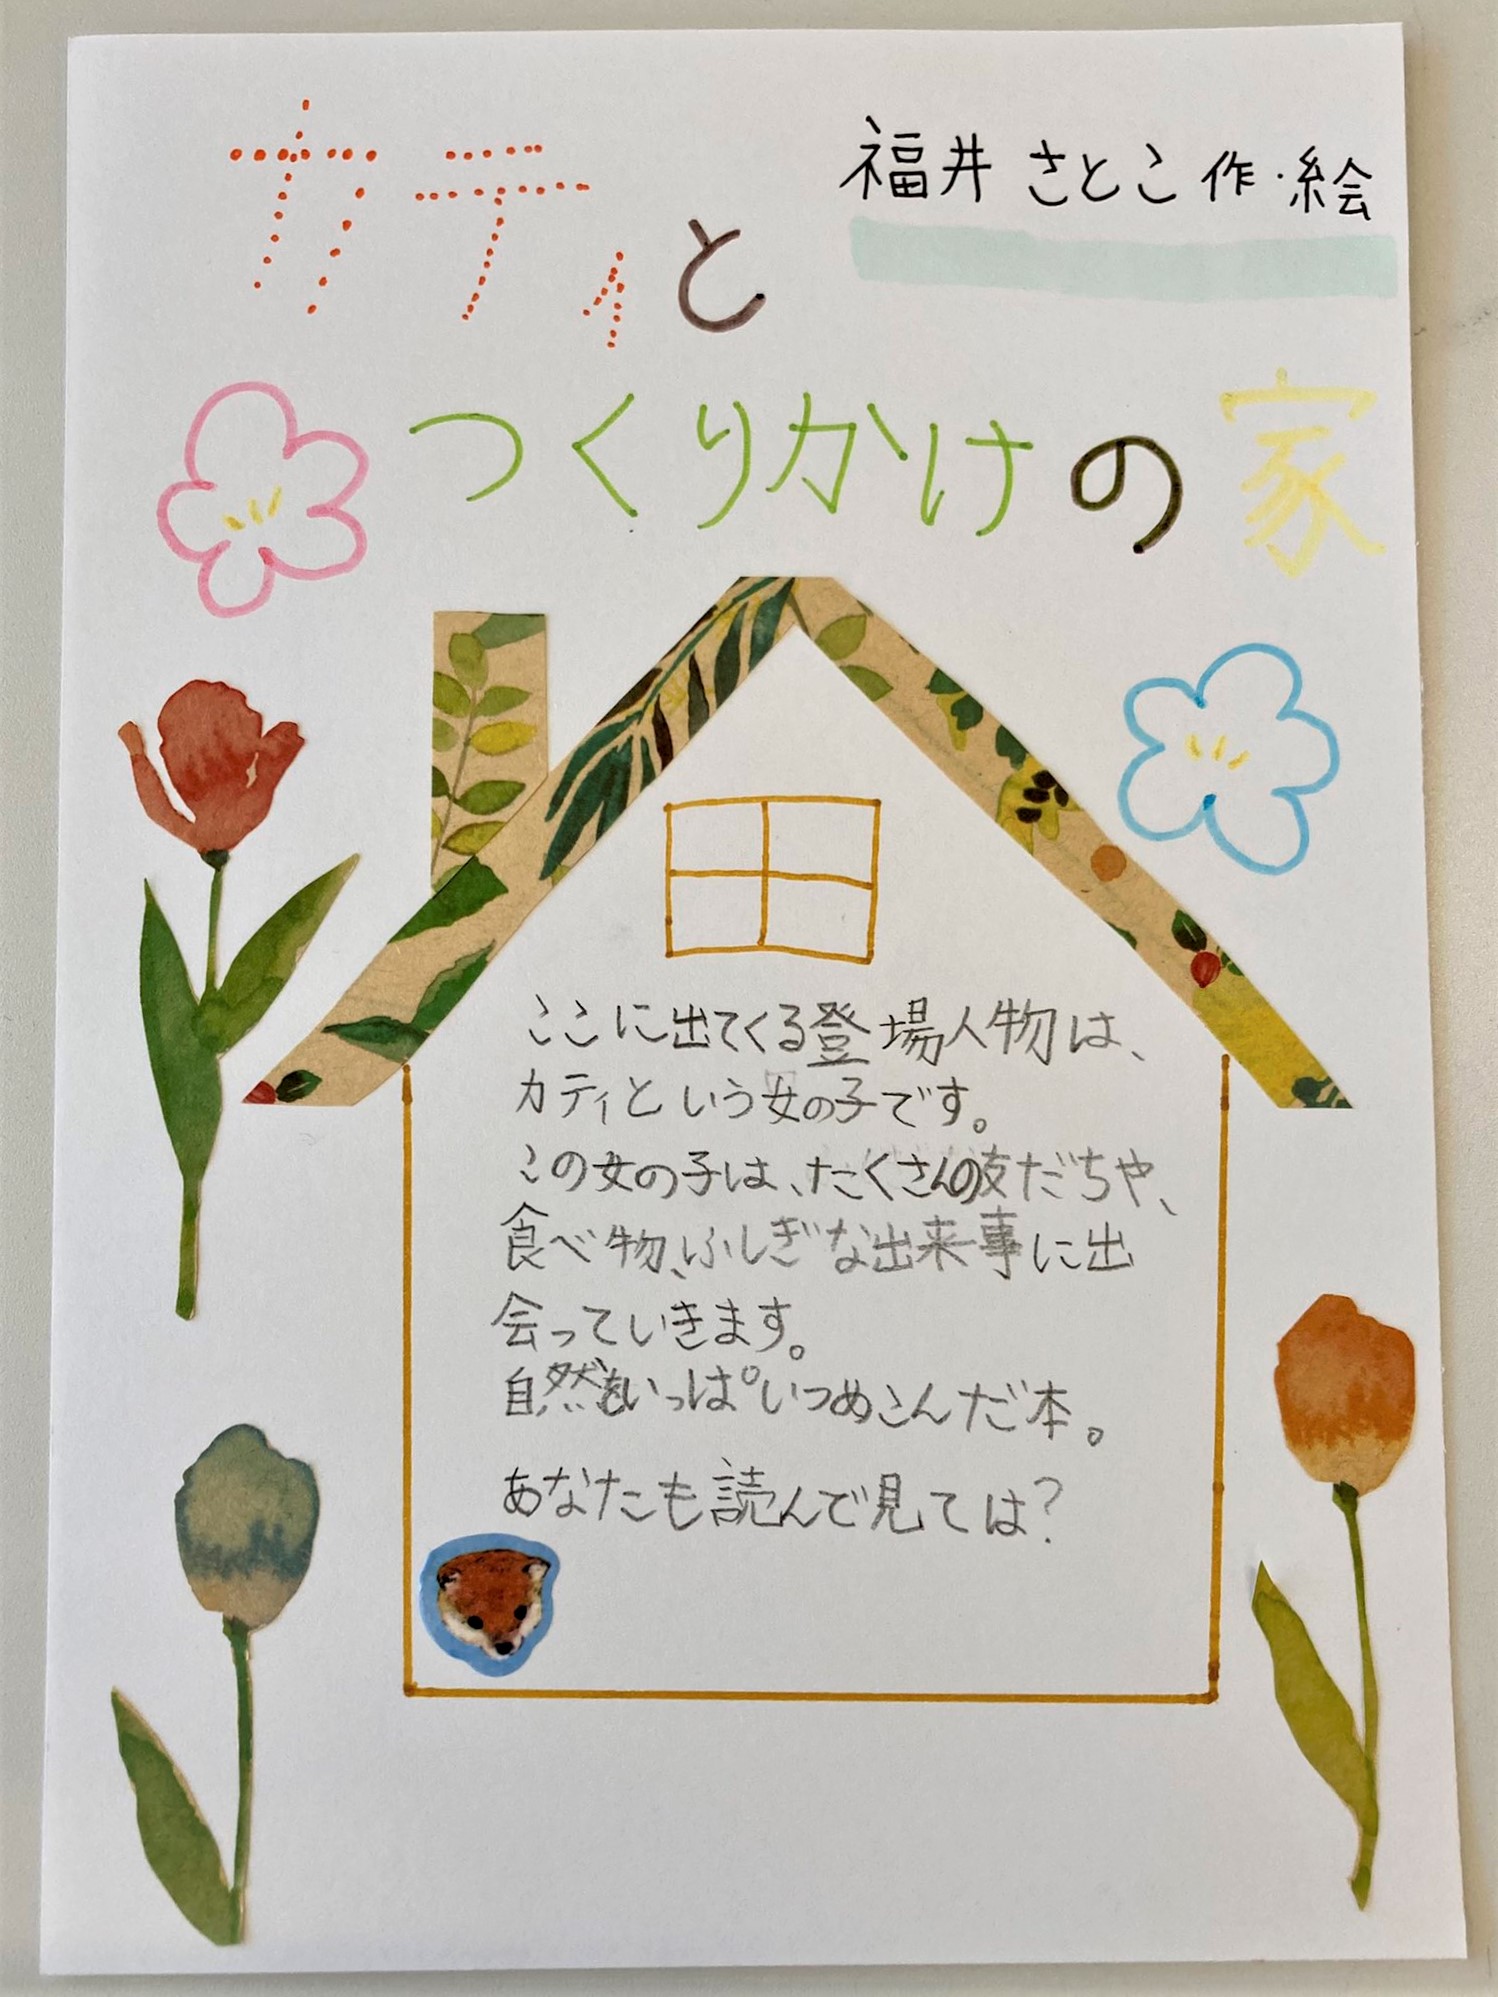 カティと
福井 さとこ 作・絵
つくりかけの家
ここに出てくる登場人物は、
カティという女の子です。
この女の子は、たくさんの友だちや、
食べ物、ふしぎな出来事に出
会っていきます。
自然もいっぱいつめこんだ本。
あなたも読んで見ては?